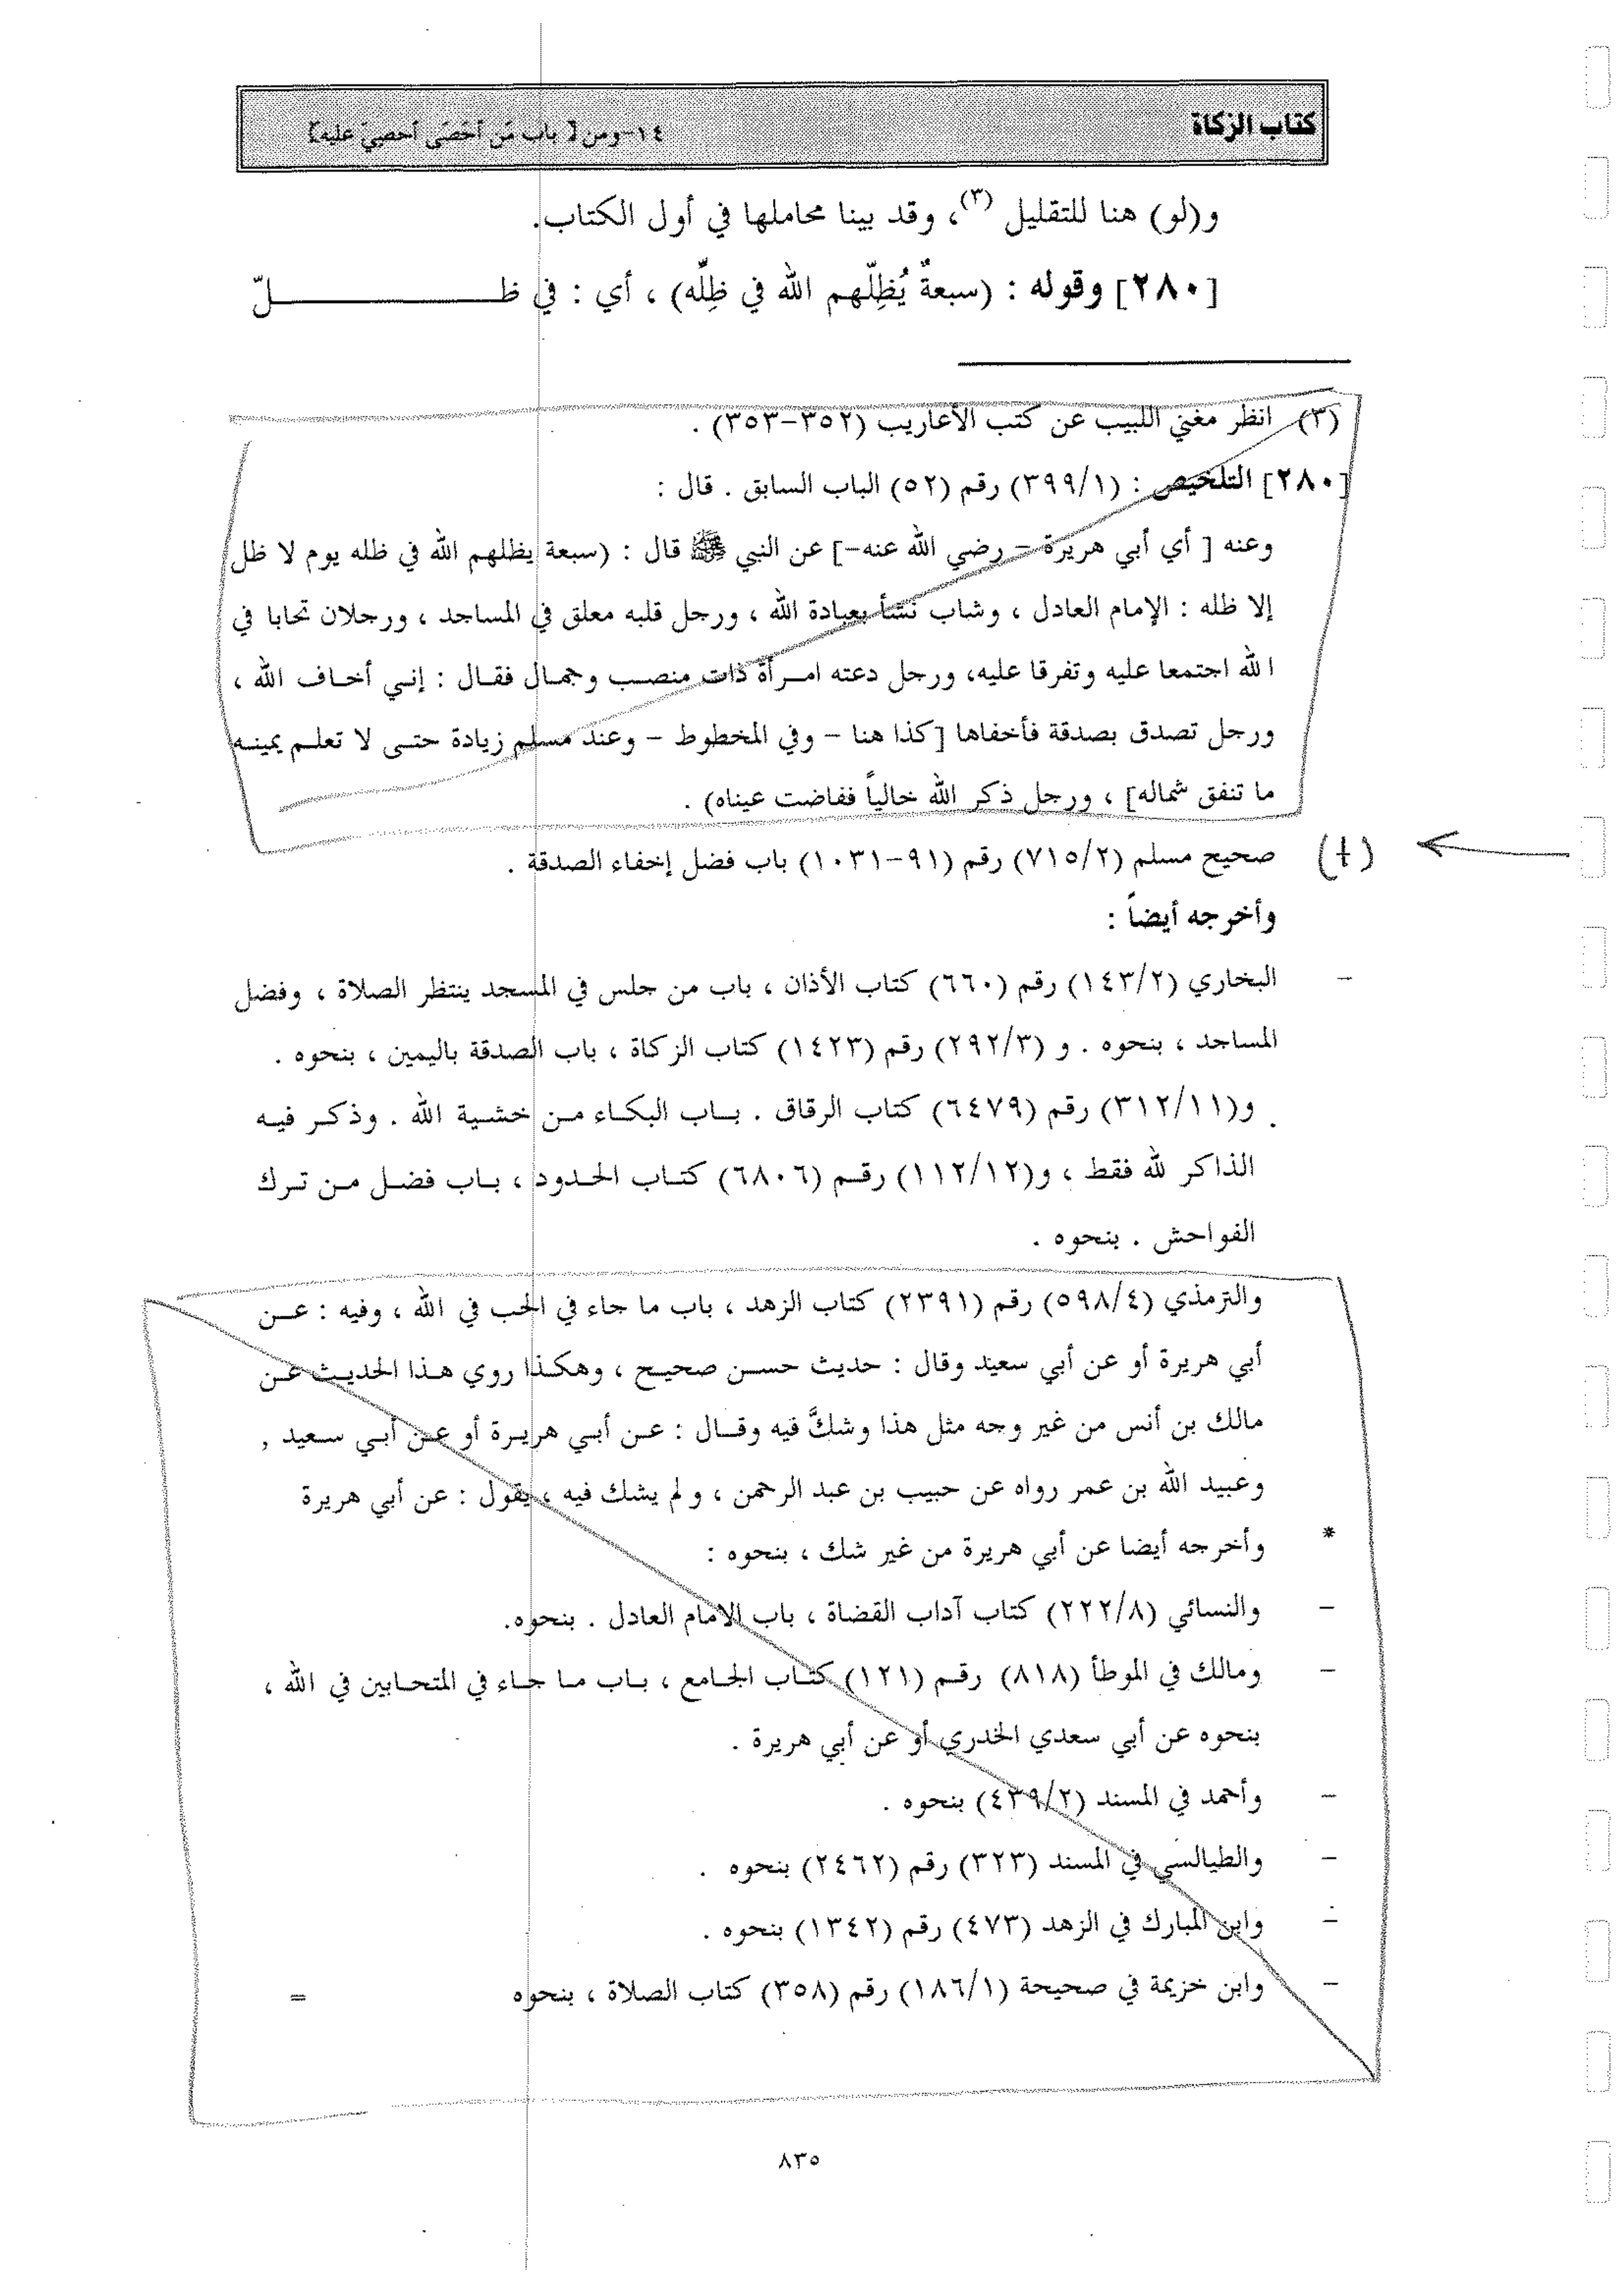 كتاب الزكاة
١٤-ومن [ باب مَن أحْصَى أحصِيَ عليه]
و(لو) هنا للتقليل (٣)، وقد بينا محاملها في أول الكتاب.
[٢٨٠] وقوله : (سبعةٌ يُظِلّهم الله في ظِلِّه) ، أي : في ظـــــــــــــــــــلّ
(٣) انظر مغني اللبيب عن كتب الأعاريب (٣٥٢-٣٥٣) .
[٢٨٠] التلخيص : (٣٩٩/١) رقم (٥٢) الباب السابق . قال :
وعنه [ أي أبي هريرة - رضي الله عنه-] عن النبي ﷺ قال : (سبعة يظلهم الله في ظله يوم لا ظل
إلا ظله : الإمام العادل ، وشاب نشأ بعبادة الله ، ورجل قلبه معلق في المساجد ، ورجلان تحابا في
الله اجتمعا عليه وتفرقا عليه، ورجل دعته امـرأة ذات منصـب وجمـال فقـال : إنـي أخـاف الله ،
ورجل تصدق بصدقة فأخفاها [كذا هنا - وفي المخطوط - وعند مسلم زيادة حتـى لا تعلـم يمينـه
ما تنفق شماله] ، ورجل ذكر الله خالياً ففاضت عيناه) .
(١) صحيح مسلم (٧١٥/٢) رقم (٩١-١٠٣١) باب فضل إخفاء الصدقة .
وأخرجه أيضاً :
- البخاري (١٤٣/٢) رقم (٦٦٠) كتاب الأذان ، باب من جلس في المسجد ينتظر الصلاة ، وفضل
المساجد ، بنحوه . و (٢٩٢/٣) رقم (١٤٢٣) كتاب الزكاة ، باب الصدقة باليمين ، بنحوه .
و(٣١٢/١١) رقم (٦٤٧٩) كتاب الرقاق . بـاب البكـاء مـن خشـية الله . وذكـر فيـه
الذاكر لله فقط ، و(١١٢/١٢) رقـم (٦٨٠٦) كتـاب الحـدود ، بـاب فضـل مـن تـرك
الفواحش . بنحوه .
والترمذي (٥٩٨/٤) رقم (٢٣٩١) كتاب الزهد ، باب ما جاء في الحب في الله ، وفيه : عـن
أبي هريرة أو عن أبي سعيد وقال : حديث حسـن صحيـح ، وهكـذا روي هـذا الحديـث عـن
مالك بن أنس من غير وجه مثل هذا وشكَّ فيه وقـال : عـن أبـي هريـرة أو عـن أبـي سـعيد ,
وعبيد الله بن عمر رواه عن حبيب بن عبد الرحمن ، و لم يشك فيه ، يقول : عن أبي هريرة
* وأخرجه أيضا عن أبي هريرة من غير شك ، بنحوه :
- والنسائي (٢٢٢/٨) كتاب آداب القضاة ، باب الامام العادل . بنحوه.
- ومالك في الموطأ (٨١٨) رقـم (١٢١) كتـاب الجـامع ، بـاب مـا جـاء في المتحـابين في الله ،
بنحوه عن أبي سعدي الخدري أو عن أبي هريرة .
- وأحمد في المسند (٤٣٩/٢) بنحوه .
- والطيالسي في المسند (٣٢٣) رقم (٢٤٦٢) بنحوه .
- وابن المبارك في الزهد (٤٧٣) رقم (١٣٤٢) بنحوه .
- وابن خزيمة في صحيحة (١٨٦/١) رقم (٣٥٨) كتاب الصلاة ، بنحوه =
٨٣٥